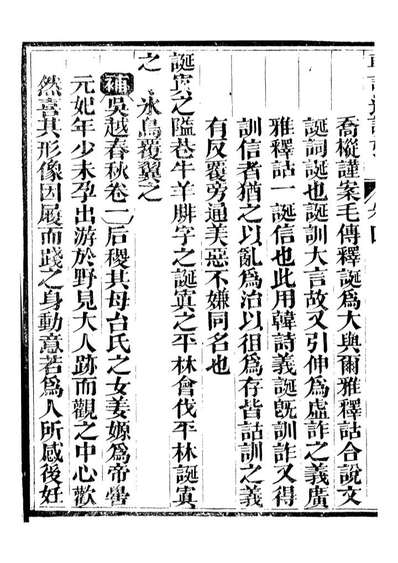 喬樅謹案毛傳釋誕爲大與爾雅釋詁合說文
誕詞誕也誕訓大言故又引伸爲虛詐之義廣
雅釋詁一誕信也此用韓詩義誕旣訓詐又得
訓信者猶之以亂爲治以徂爲存皆詁訓之義
有反覆旁通美惡不嫌同名也
誕寘之隘巷牛羊腓字之誕寘之平林會伐平林誕寘
之 氷鳥覆翼之
補吳越春秋卷一后稷其母台氏之女姜嫄爲帝嚳
元妃年少未孕出游於野見大人跡而觀之中心歡
然喜其形像因履而踐之身動意若爲人所感後妊